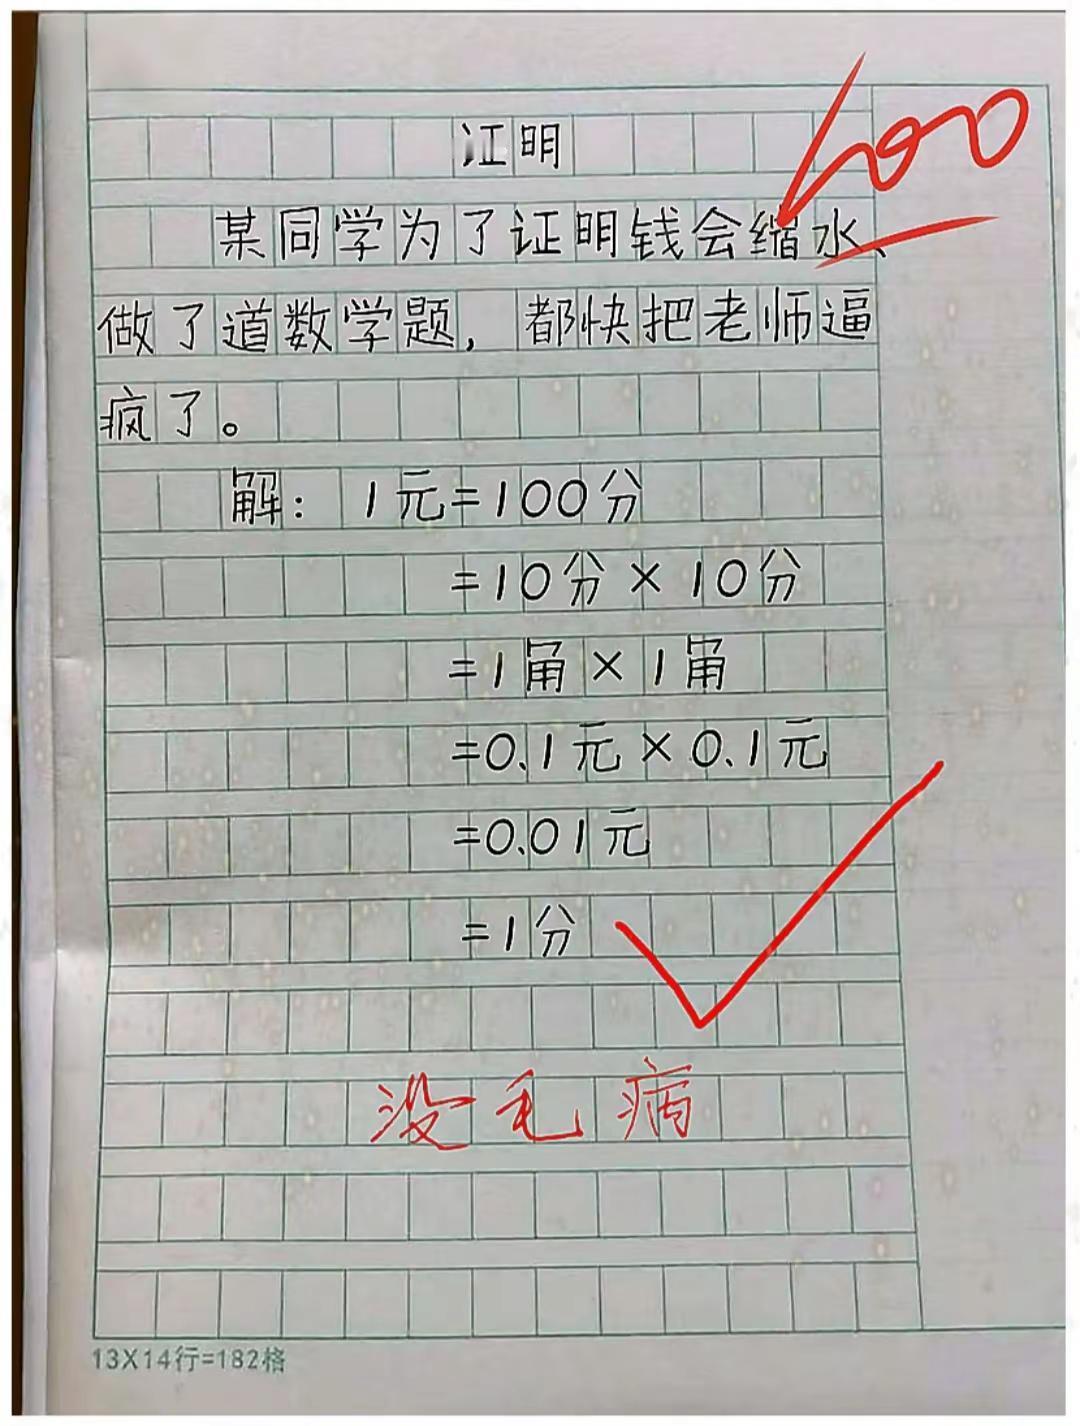 100
证明
某同学为了证明钱会缩水、
做了道数学题，都快把老师逼
疯了。
解：1元=100分
=10分×10分
=1角×1角
=0.1元×0.1元
=0.01元
=1分
没毛病
13X14行=182格